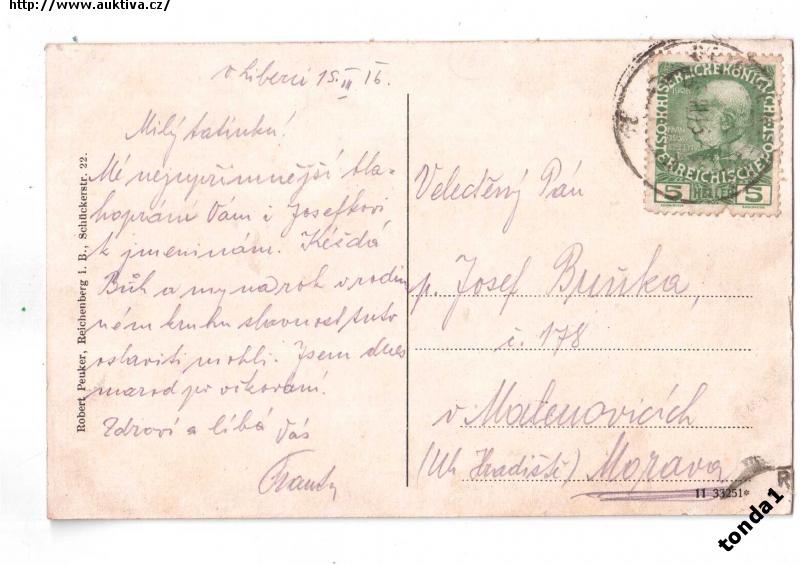 http://www.auktiva.cz/
v Liberci 15. III 16.
Milý tatínku!
Mé nejupřímnější bla-
hopřání Vám i Josefkovi
k jmeninám. Kéž dá
Bůh a my na rok v rodin
ném kruhu slavnost tuto
oslaviti mohli. Jsem dnes
marod po očkování.
Zdraví a líbá Vás
Robert Peuker, Reichenberg i. B., Schückerstr. 22.
5 HELLER 5
1908
Veleděný Pán
p. Josef Buňka,
č. 178
v Malenovicích
(Uh Hradiště) Morava
11 33251*
tonda1